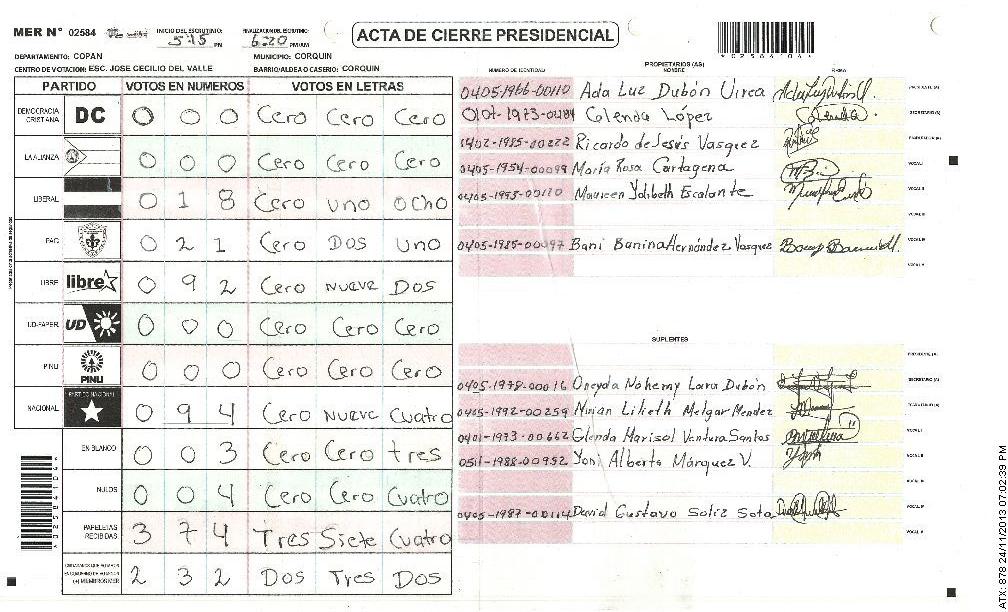 MER N° 02584 INICIO DEL ESCRUTINIO: 5:15 PM FINALIZACION DEL ESCRUTINIO: 6:20 PM/AM
ACTA DE CIERRE PRESIDENCIAL
DEPARTAMENTO: COPAN MUNICIPIO: CORQUIN
CENTRO DE VOTACION: ESC. JOSE CECILIO DEL VALLE BARRIO/ALDEA O CASERIO: CORQUIN
PARTIDO VOTOS EN NUMEROS VOTOS EN LETRAS
DEMOCRACIA CRISTIANA DC 0 0 0 Cero Cero Cero
LA ALIANZA 0 0 0 Cero Cero Cero
LIBERAL 0 1 8 Cero uno ocho
PAC 0 2 1 Cero Dos uno
LIBRE libre 0 9 2 Cero nueve Dos
UD-FAPER UD 0 0 0 Cero Cero Cero
PINU PINU 0 0 0 Cero Cero Cero
NACIONAL PARTIDO NACIONAL 0 9 4 Cero Nueve Cuatro
EN BLANCO 0 0 3 Cero Cero tres
NULOS 0 0 4 Cero Cero Cuatro
PAPELETAS RECIBIDAS 3 7 4 Tres Siete Cuatro
(+) MIEMBROS MER 2 3 2 Dos Tres Dos
PROPIETARIOS (AS)
NUMERO DE IDENTIDAD NOMBRE FIRMA
0405-1966-00110 Ada Luz Dubón PRESIDENTE (A)
Glenda López SECRETARIO (A)
1402-1985-00222 Ricardo de Jesús Vasquez
0405-1954-00099 María Rosa Cartagena VOCAL I
0405-1993-00110 Maureen Escalante VOCAL II
VOCAL III
0405-1985-00097 Bani Hernández Vasquez VOCAL IV
VOCAL V
SUPLENTES
PRESIDENTE (A)
0405-1978-00016 Oneyda Nohemy Lara Dubón SECRETARIO (A)
0405-1992-00259 Lilieth Melgar Mendez
0401-1973-00662 Glenda Marisol Ventura Santos VOCAL I
0511-1988-00952 Yoni Alberto Márquez V. VOCAL II
VOCAL III
0405-1987-00114 David Gustavo Soliz Soto VOCAL IV
VOCAL V
ATX: 878 24/11/2013 07:02:39 PM